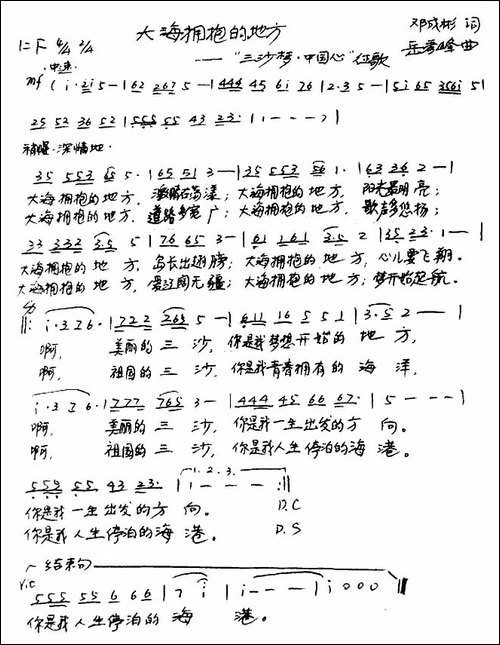 大海拥抱的地方
邓成彬 词
1=F 4/4 2/4
——"三沙梦·中国心"征歌
曲
中速
mf ( i· 2i 5 — | 62 267 5 — | 444 45 61 76 | 2·3 5 — | 5i 65 356i 5 |
25 52 36 52 | 555 55 43 23· | i — — — ) |
深情地·
35 553 65 5· | 65 51 3 — | 35 553 56 1· | 63 36 2 — |
大海拥抱的地方, 激情在荡漾; 大海拥抱的地方, 阳光最明亮;
大海拥抱的地方, 道路多宽广; 大海拥抱的地方, 歌声多悠扬;
33 332 35 5 | 76 65 3 — | 61 161 35 2 | 35 23· 1 — |
大海拥抱的地方, 岛长出翅膀; 大海拥抱的地方, 心儿要飞翔。
大海拥抱的地方, 爱辽阔无疆; 大海拥抱的地方, 梦开始起航。
||: i·376· | 722 265 5 — | 611 16 5 51 | 3·52 — |
啊, 美丽的三沙, 你是我梦想开始的地方,
啊, 祖国的三沙, 你是我青春拥有的海洋,
i·376· | 777 765 3 — | 444 45 66 67· | 5 — — |
啊, 美丽的三沙, 你是我一生出发的方向。
啊, 祖国的三沙, 你是我人生停泊的海港。
1. 2. 3.
555 55 43 23· | i — — — :||
你是我一生出发的方向。 D.C
你是我人生停泊的海港。 D.S
结束句
555 55 6 66 | 7 i | i — — — | i 0 0 0 ||
你是我人生停泊的海港。